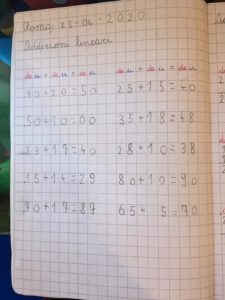 Roma, 25-04-2020
Addizioni lineari
da u + da u = da u da u + da u = da u
30+20=50 25+15=40
50+10=60 35+13=48
23+17=40 28+10=38
15+14=29 80+10=90
70+17=87 65+ 5=70